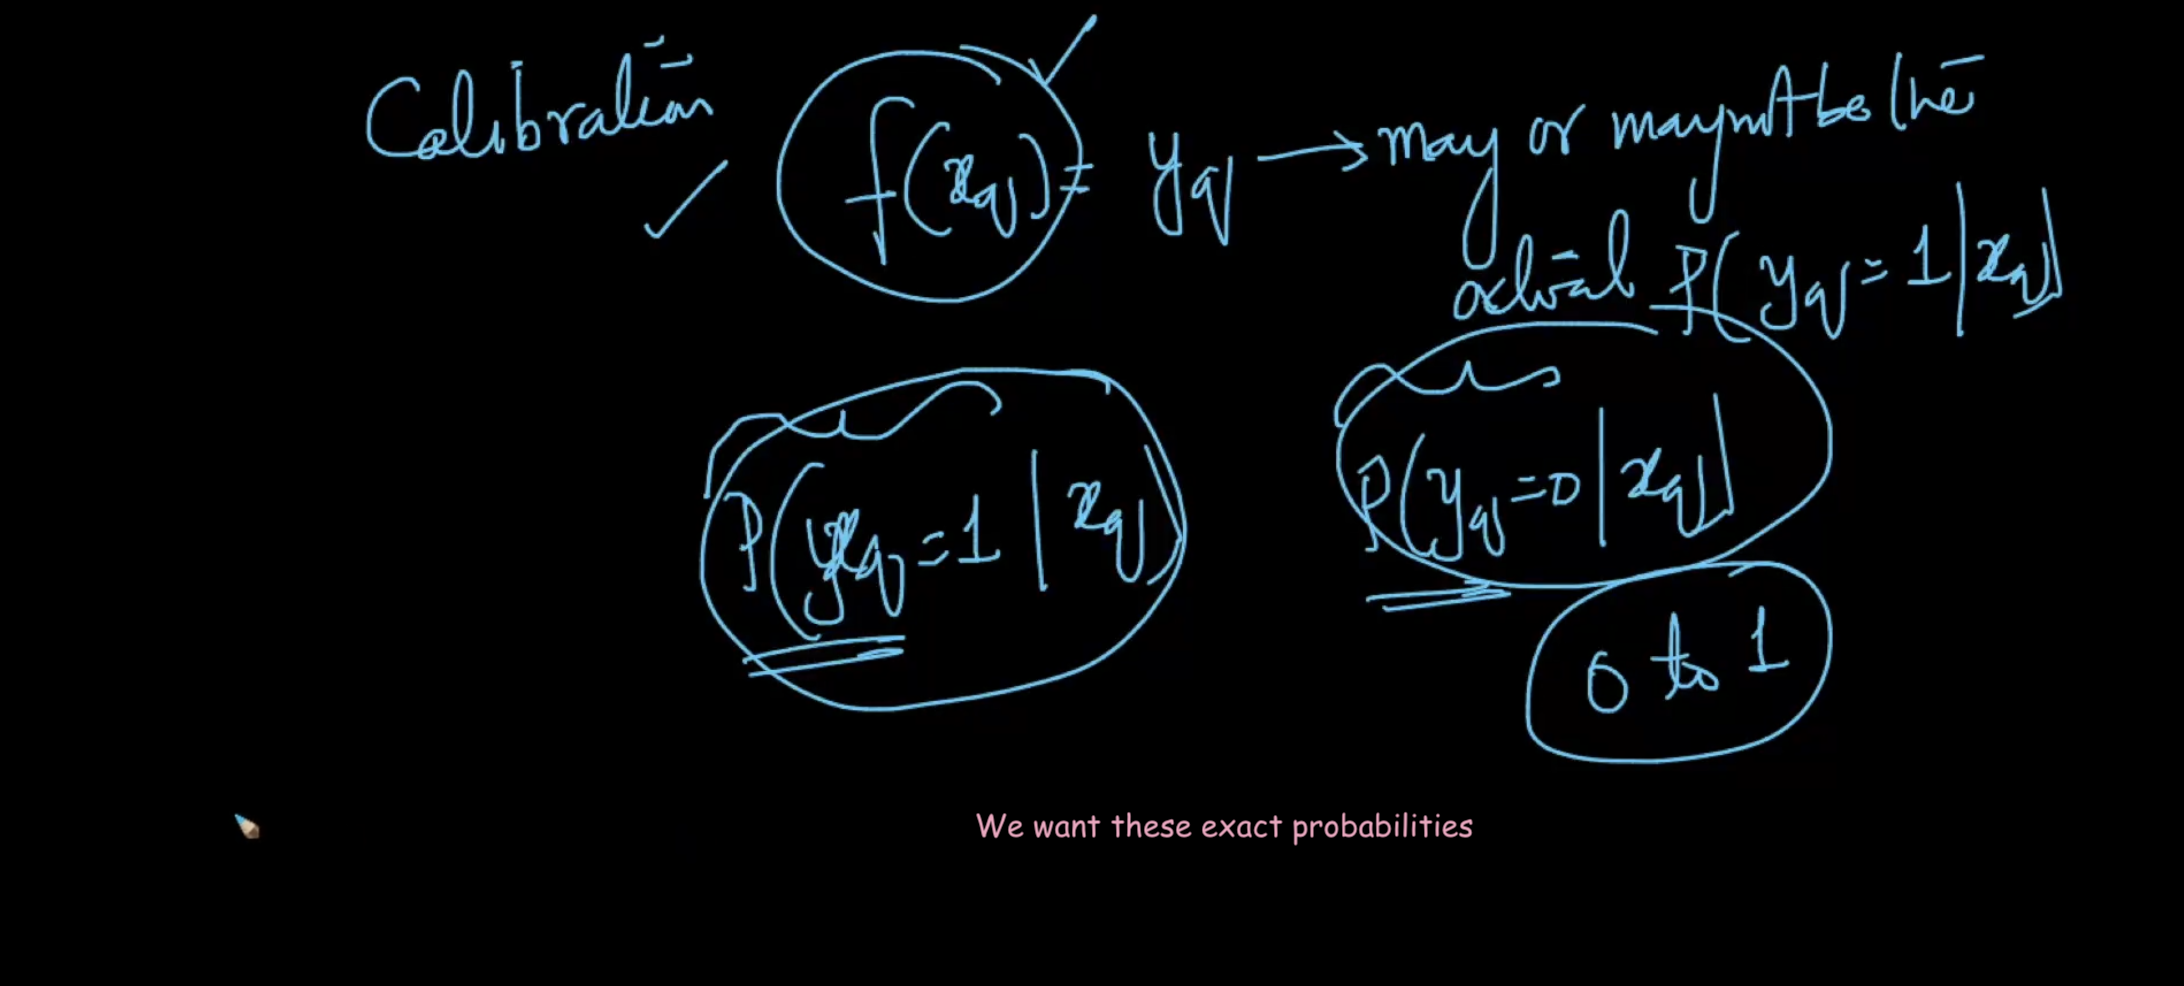 Calibration f(xq) = yq → may or may not be the
actual P(yq = 1 | xq)
P(yq = 1 | xq) P(yq = 0 | xq)
0 to 1
We want these exact probabilities